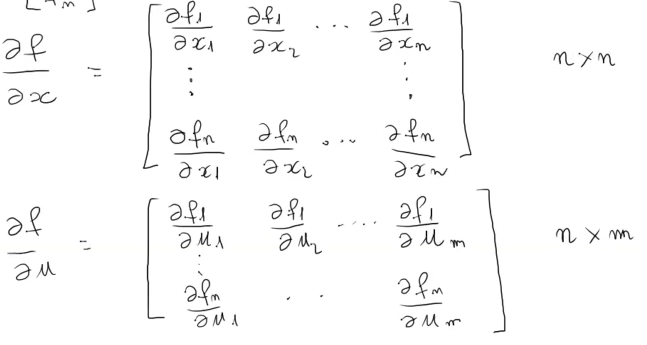 ∂f/∂x = [ ∂f1/∂x1 ∂f1/∂x2 ··· ∂f1/∂xn
⋮ ⋮
∂fn/∂x1 ∂fn/∂x2 ··· ∂fn/∂xn ] n×n
∂f/∂u = [ ∂f1/∂u1 ∂f1/∂u2 ···· ∂f1/∂um
⋮
∂fn/∂u1 · · ∂fn/∂um ] n×m